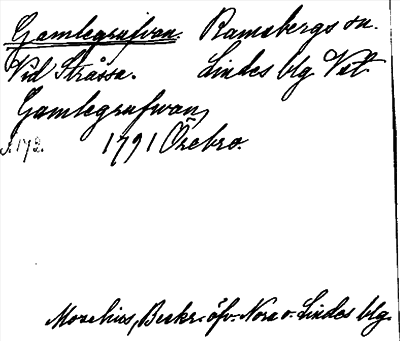 Gamlegrufvan. Ramsbergs sn.
Vid Stråssa. Lindes blg Vstl
Gamlegrufwan,
s. 172. 1791 Örebro.
Morelius, Beskr. öfv. Nora o. Lindes blg.